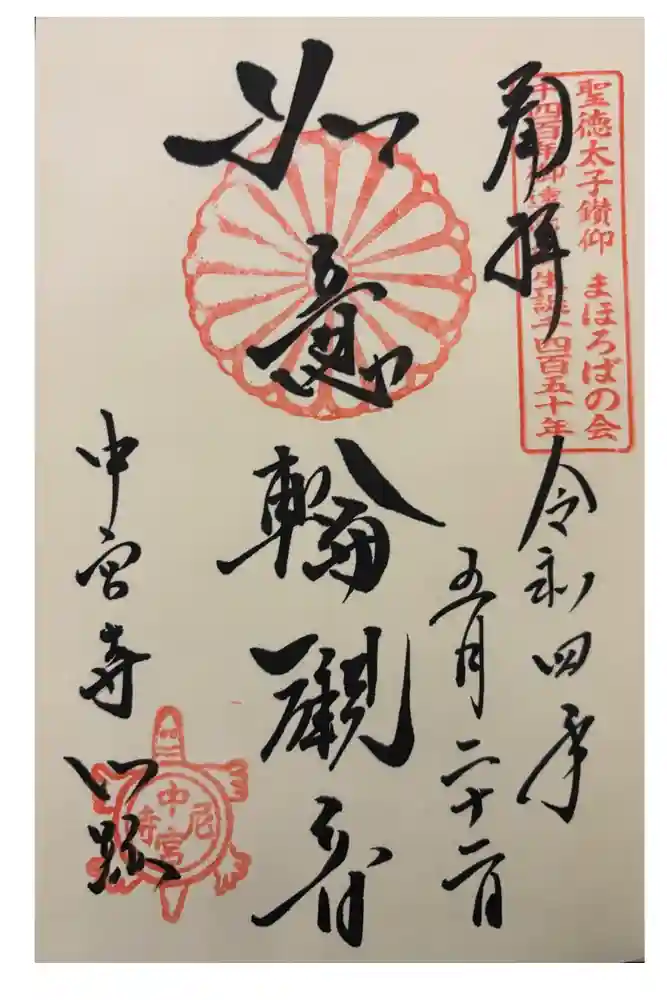 聖徳太子鑚仰 まほろばの会
千四百年御遠 生誕千四百五十年
奉拝
令和四年
五月二十二日
如意輪觀音
中宮寺門跡
中宮尼寺